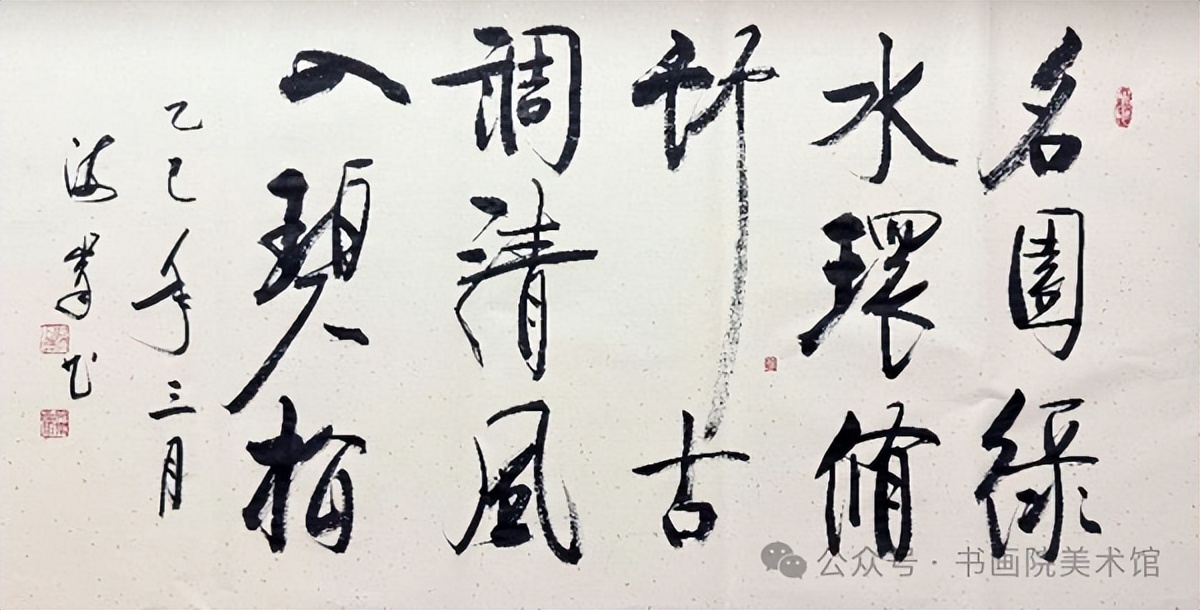 名園綠
水環脩
竹古
調清風
入碧梧
乙巳年三月
海书
公众号·书画院美术馆